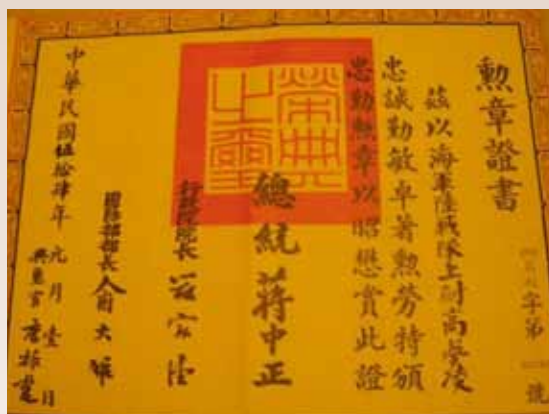 勲章證書
字第 號
茲以海軍陸戰隊上尉高夢凌
忠誠勤敏卓著勲勞特頒
忠勤勲章以昭懋賞此證
榮典之璽
總統蔣中正
行政院院長嚴家淦
國防部部長俞大維
中華民國伍拾肆年元月壹日
典璽官